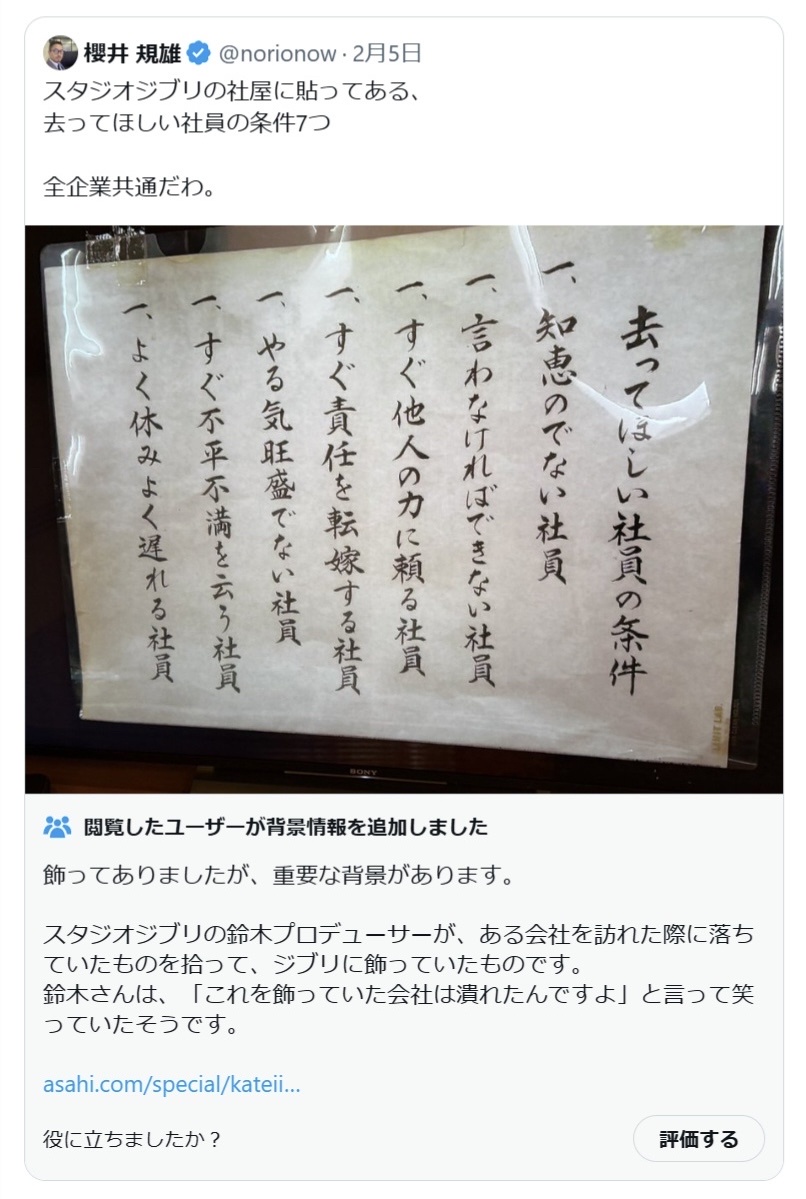 櫻井 規雄 @norionow · 2月5日
スタジオジブリの社屋に貼ってある、
去ってほしい社員の条件7つ
全企業共通だわ。
去ってほしい社員の条件
一、知恵のでない社員
一、言わなければできない社員
一、すぐ他人の力に頼る社員
一、すぐ責任を転嫁する社員
一、やる気旺盛でない社員
一、すぐ不平不満を云う社員
一、よく休みよく遅れる社員
SONY
閲覧したユーザーが背景情報を追加しました
飾ってありましたが、重要な背景があります。
スタジオジブリの鈴木プロデューサーが、ある会社を訪れた際に落ち
ていたものを拾って、ジブリに飾っていたものです。
鈴木さんは、「これを飾っていた会社は潰れたんですよ」と言って笑
っていたそうです。
asahi.com/special/kateii...
役に立ちましたか？
評価する